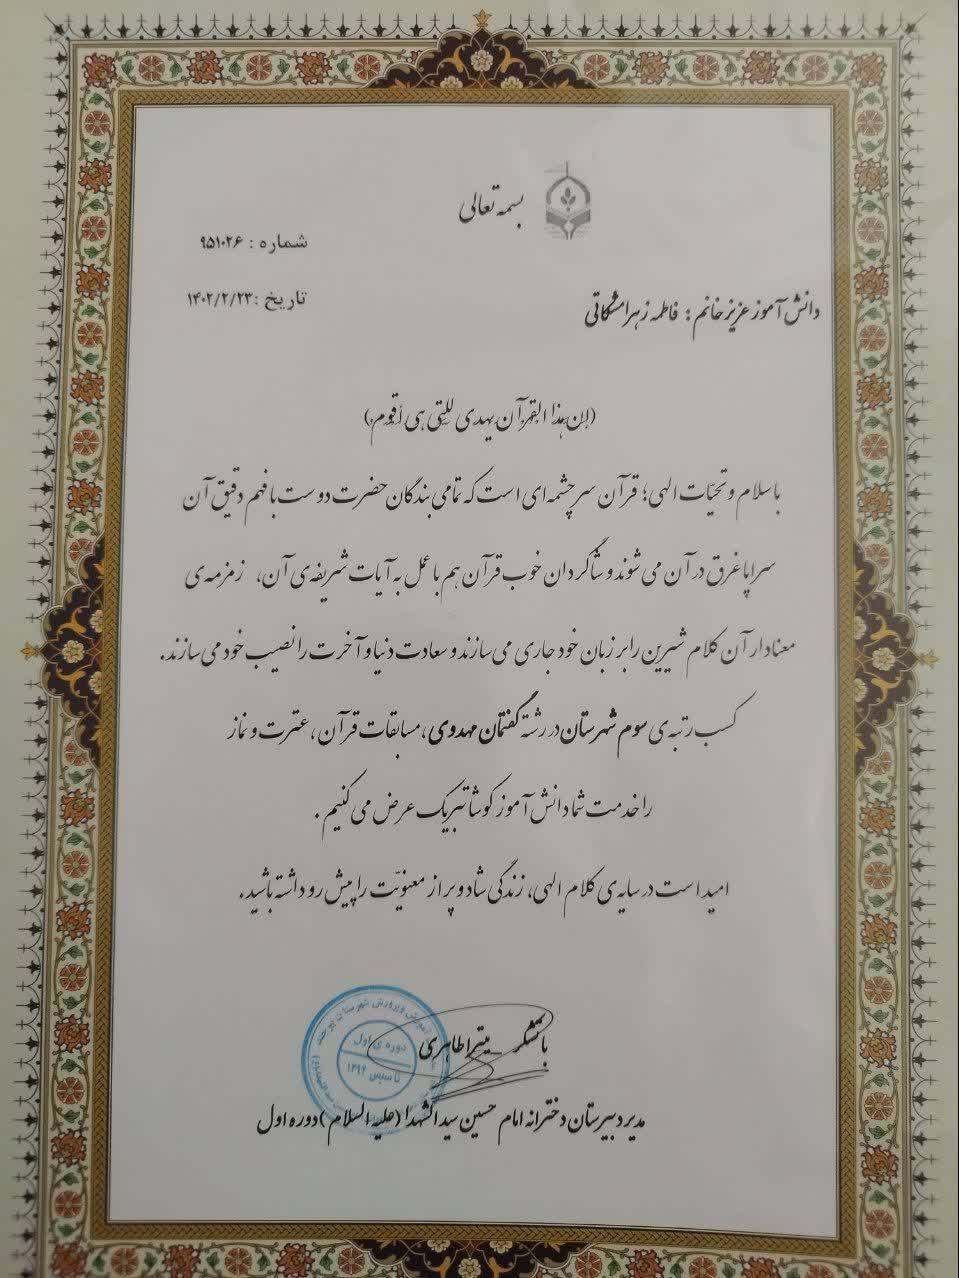 بسمه تعالی
شماره : ۹۵۱۰۲۶
تاریخ :۱۴۰۲/۲/۲۳
دانش آموز عزیز خانم : فاطمه زهرا مشکاتی
(إن هذا القرآن یهدی للتی هی أقوم)
با سلام و تحیّات الهی؛ قرآن سرچشمه ای است که تمامی بندگان حضرت دوست با فهم دقیق آن
سراپا غرق در آن می شوند و شاگردان خوب قرآن هم با عمل به آیات شریفه ی آن، زمزمه ی
معنادار آن کلام شیرین را بر زبان خود جاری می سازند و سعادت دنیا و آخرت را نصیب خود می سازند.
کسب رتبه ی سوم شهرستان در رشته گفتمان مهدوی، مسابقات قرآن، عترت و نماز
را خدمت شما دانش آموز کوشا تبریک عرض می کنیم .
امید است در سایه ی کلام الهی، زندگی شاد و پر از معنویّت را پیش رو داشته باشید .
با تشکر _ میترا طاهری
مدیر دبیرستان دخترانه امام حسین سیدالشهدا (علیه السلام) دوره اول
آموزش و پرورش شهرستان
دوره ی اول
تاسیس ۱۳۹۲